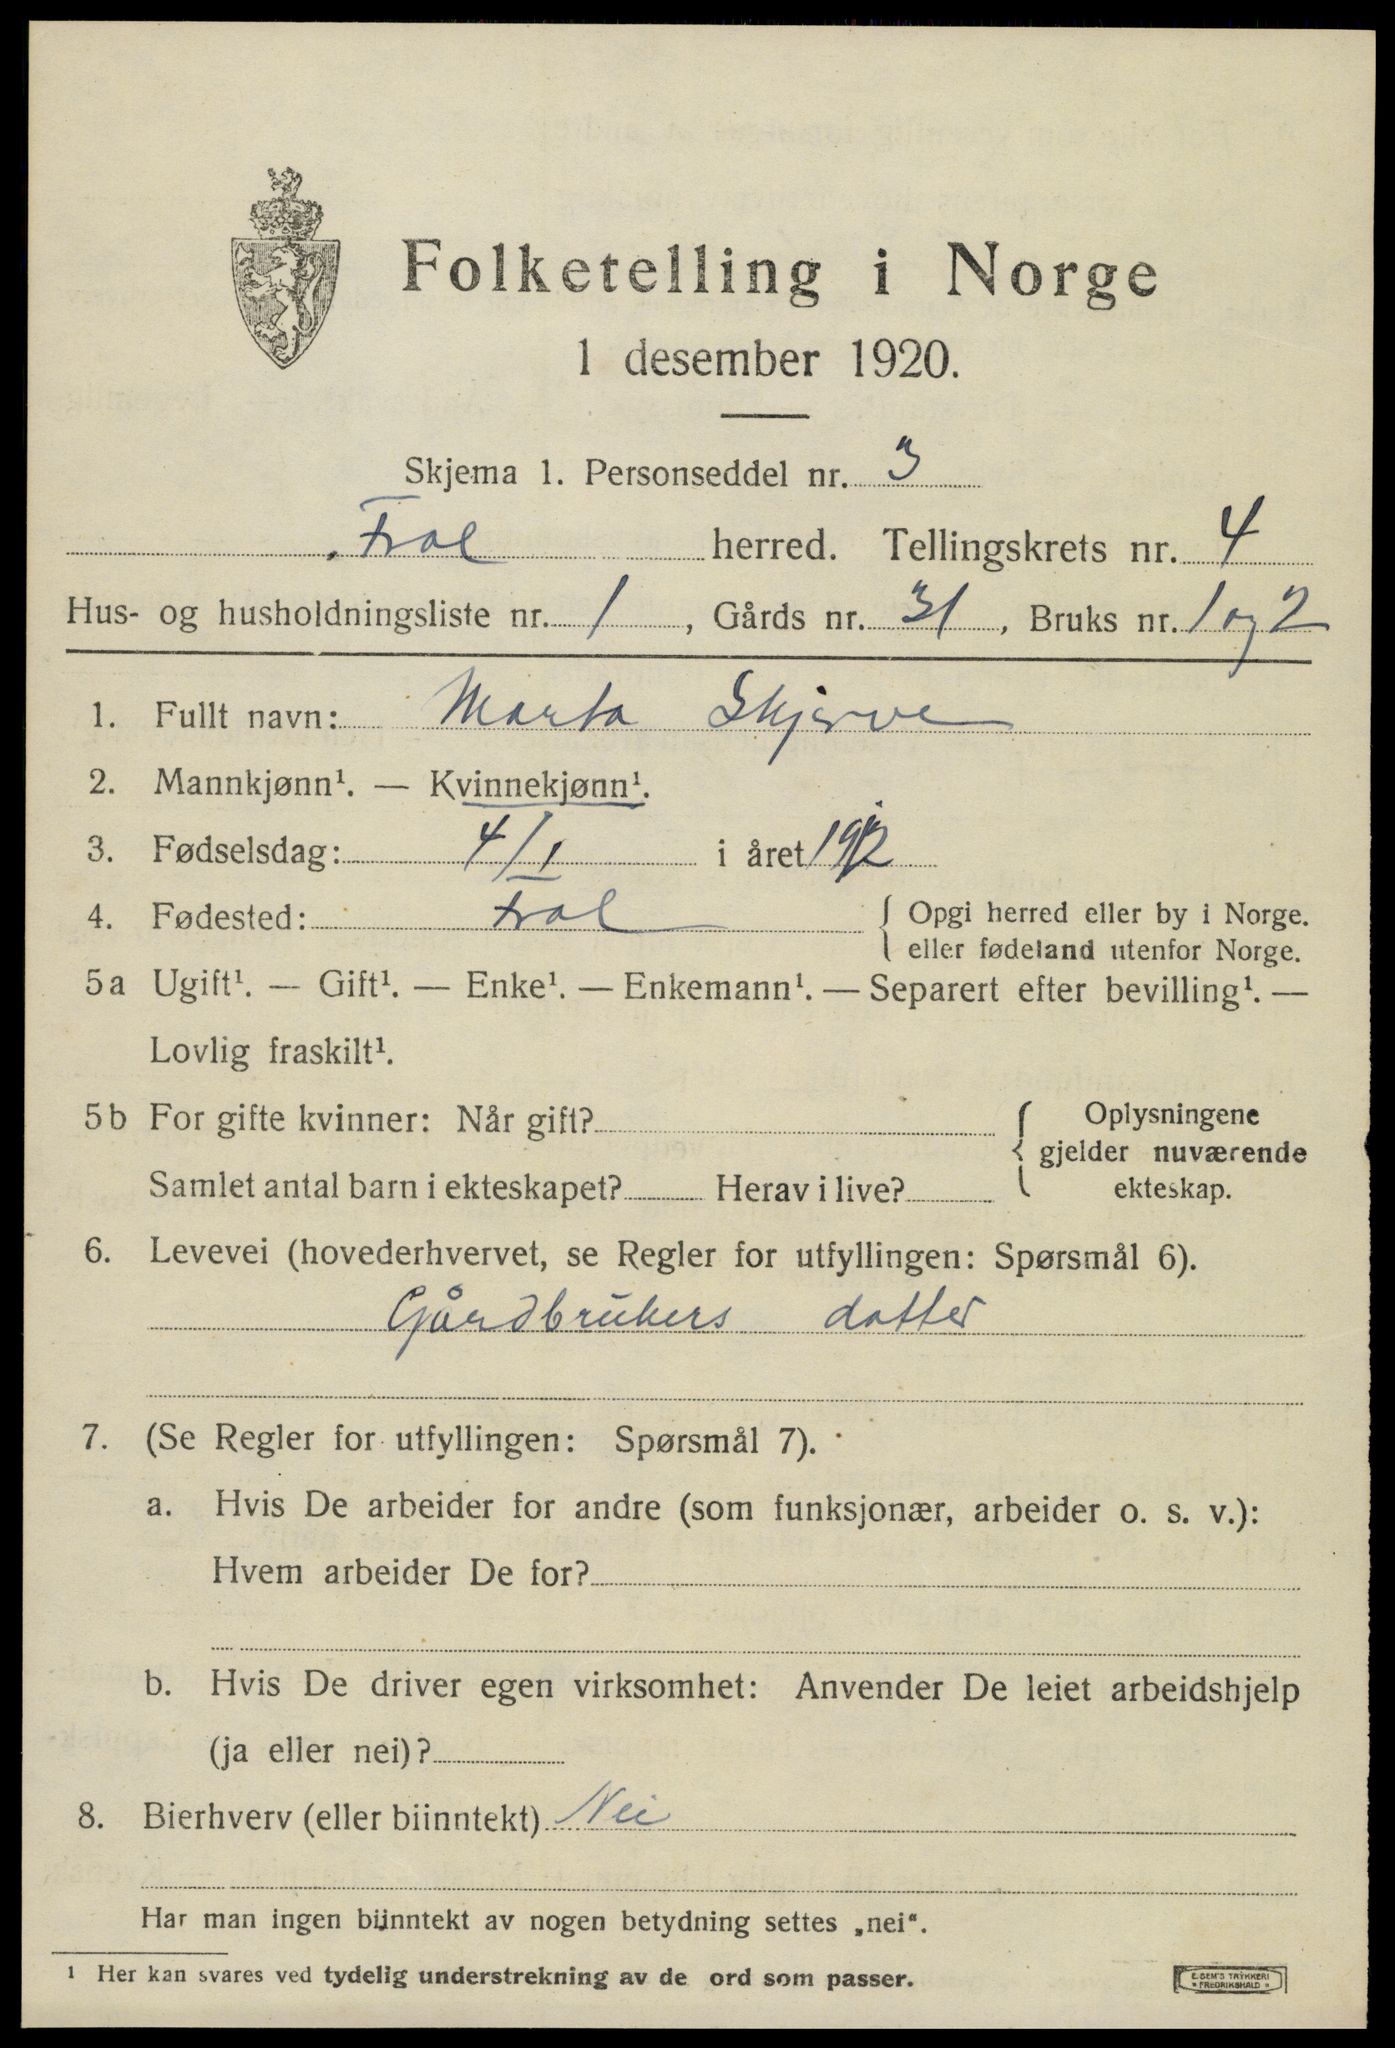 Folketelling i Norge
1 desember 1920.
Skjema 1. Personseddel nr. 3
Frol herred. Tellingskrets nr. 4
Hus- og husholdningsliste nr. 1, Gårds nr. 31, Bruks nr. 1 og 2
1. Fullt navn: Marta Skjerve
2. Mannkjønn¹. — Kvinnekjønn¹.
3. Fødselsdag: 4/1 i året 1912
4. Fødested: Frol { Opgi herred eller by i Norge.
eller fødeland utenfor Norge.
5a Ugift¹. — Gift¹. — Enke¹. — Enkemann¹. — Separert efter bevilling¹. —
Lovlig fraskilt¹.
5b For gifte kvinner: Når gift? { Oplysningene
gjelder nuværende
Samlet antal barn i ekteskapet? Herav i live? ekteskap.
6. Levevei (hovederhvervet, se Regler for utfyllingen: Spørsmål 6).
Gårdbrukers datter
7. (Se Regler for utfyllingen: Spørsmål 7).
a. Hvis De arbeider for andre (som funksjonær, arbeider o. s. v.):
Hvem arbeider De for?
b. Hvis De driver egen virksomhet: Anvender De leiet arbeidshjelp
(ja eller nei)?
8. Bierhverv (eller biinntekt) Nei
Har man ingen biinntekt av nogen betydning settes „nei".
1 Her kan svares ved tydelig understrekning av de ord som passer.
E. SEM'S TRYKKERI
FREDRIKSHALD